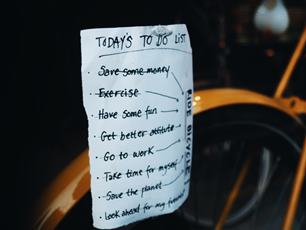 TODAY'S TO DO LIST
· Save some money
· Exercise
· Have some fun
· Get better attitute
· Go to work
· Take time for myself
· Save the planet
· Look ahead for my future
RIDE BICYCLE